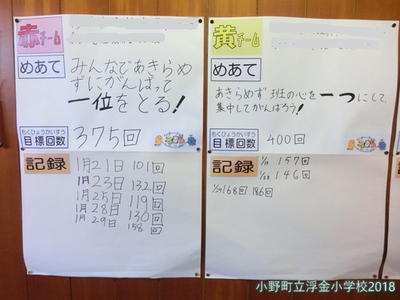 赤チーム
めあて
みんなであきらめ
ずにがんばって
一位をとる!
もくひょうかいすう
目標回数
375回
記録
1月21日 101回
1月23日 132回
1月25日 119回
1月28日 130回
1月29日 158回
黄チーム
めあて
あきらめず班の心を一つにして、
集中してがんばろう!
もくひょうかいすう
目標回数
400回
記録
157回
146回
168回 186回
小野町立浮金小学校2018